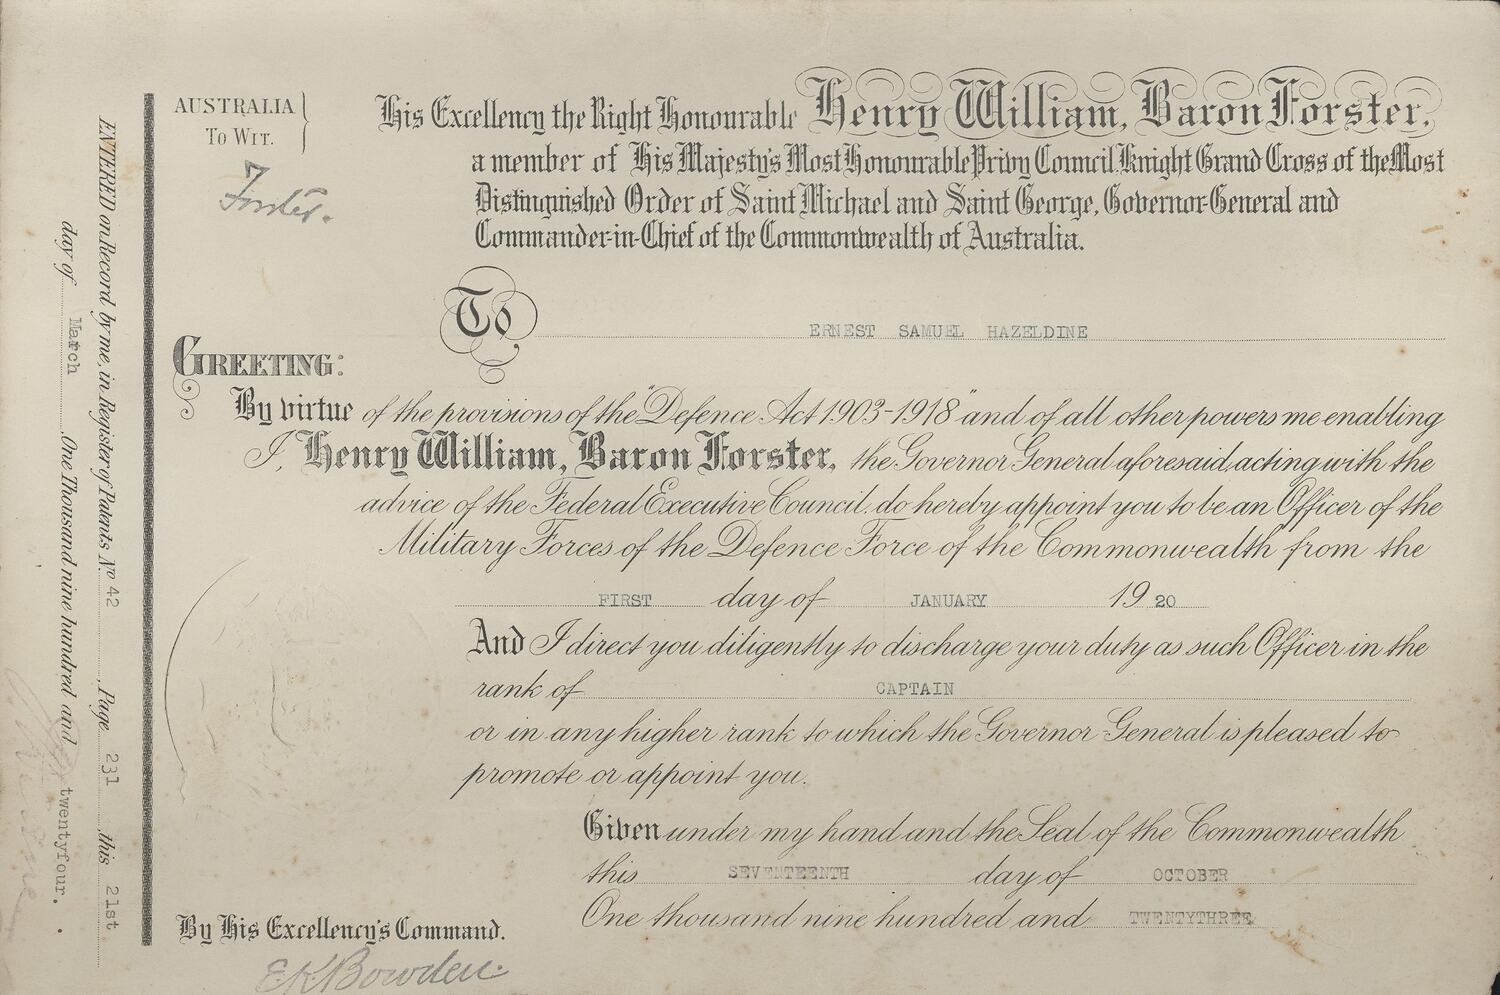 AUSTRALIA
To Wit.
Forster.
His Excellency the Right Honourable Henry William, Baron Forster,
a member of His Majesty's Most Honourable Privy Council, Knight Grand Cross of the Most
Distinguished Order of Saint Michael and Saint George, Governor-General and
Commander-in-Chief of the Commonwealth of Australia.
To ERNEST SAMUEL HAZELDINE
GREETING:
By virtue of the provisions of the "Defence Act 1903-1918" and of all other powers me enabling
I, Henry William, Baron Forster, the Governor General aforesaid, acting with the
advice of the Federal Executive Council, do hereby appoint you to be an Officer of the
Military Forces of the Defence Force of the Commonwealth from the
FIRST day of JANUARY 1920
And I direct you diligently to discharge your duty as such Officer in the
rank of CAPTAIN
or in any higher rank to which the Governor-General is pleased to
promote or appoint you.
Given under my hand and the Seal of the Commonwealth
this SEVENTEENTH day of OCTOBER
One thousand nine hundred and TWENTYTHREE
By His Excellency's Command.
E.K. Bowden.
ENTERED on Record by me, in Register of Patents No 42 Page 231 this 21st
day of March One Thousand nine hundred and twentyfour.